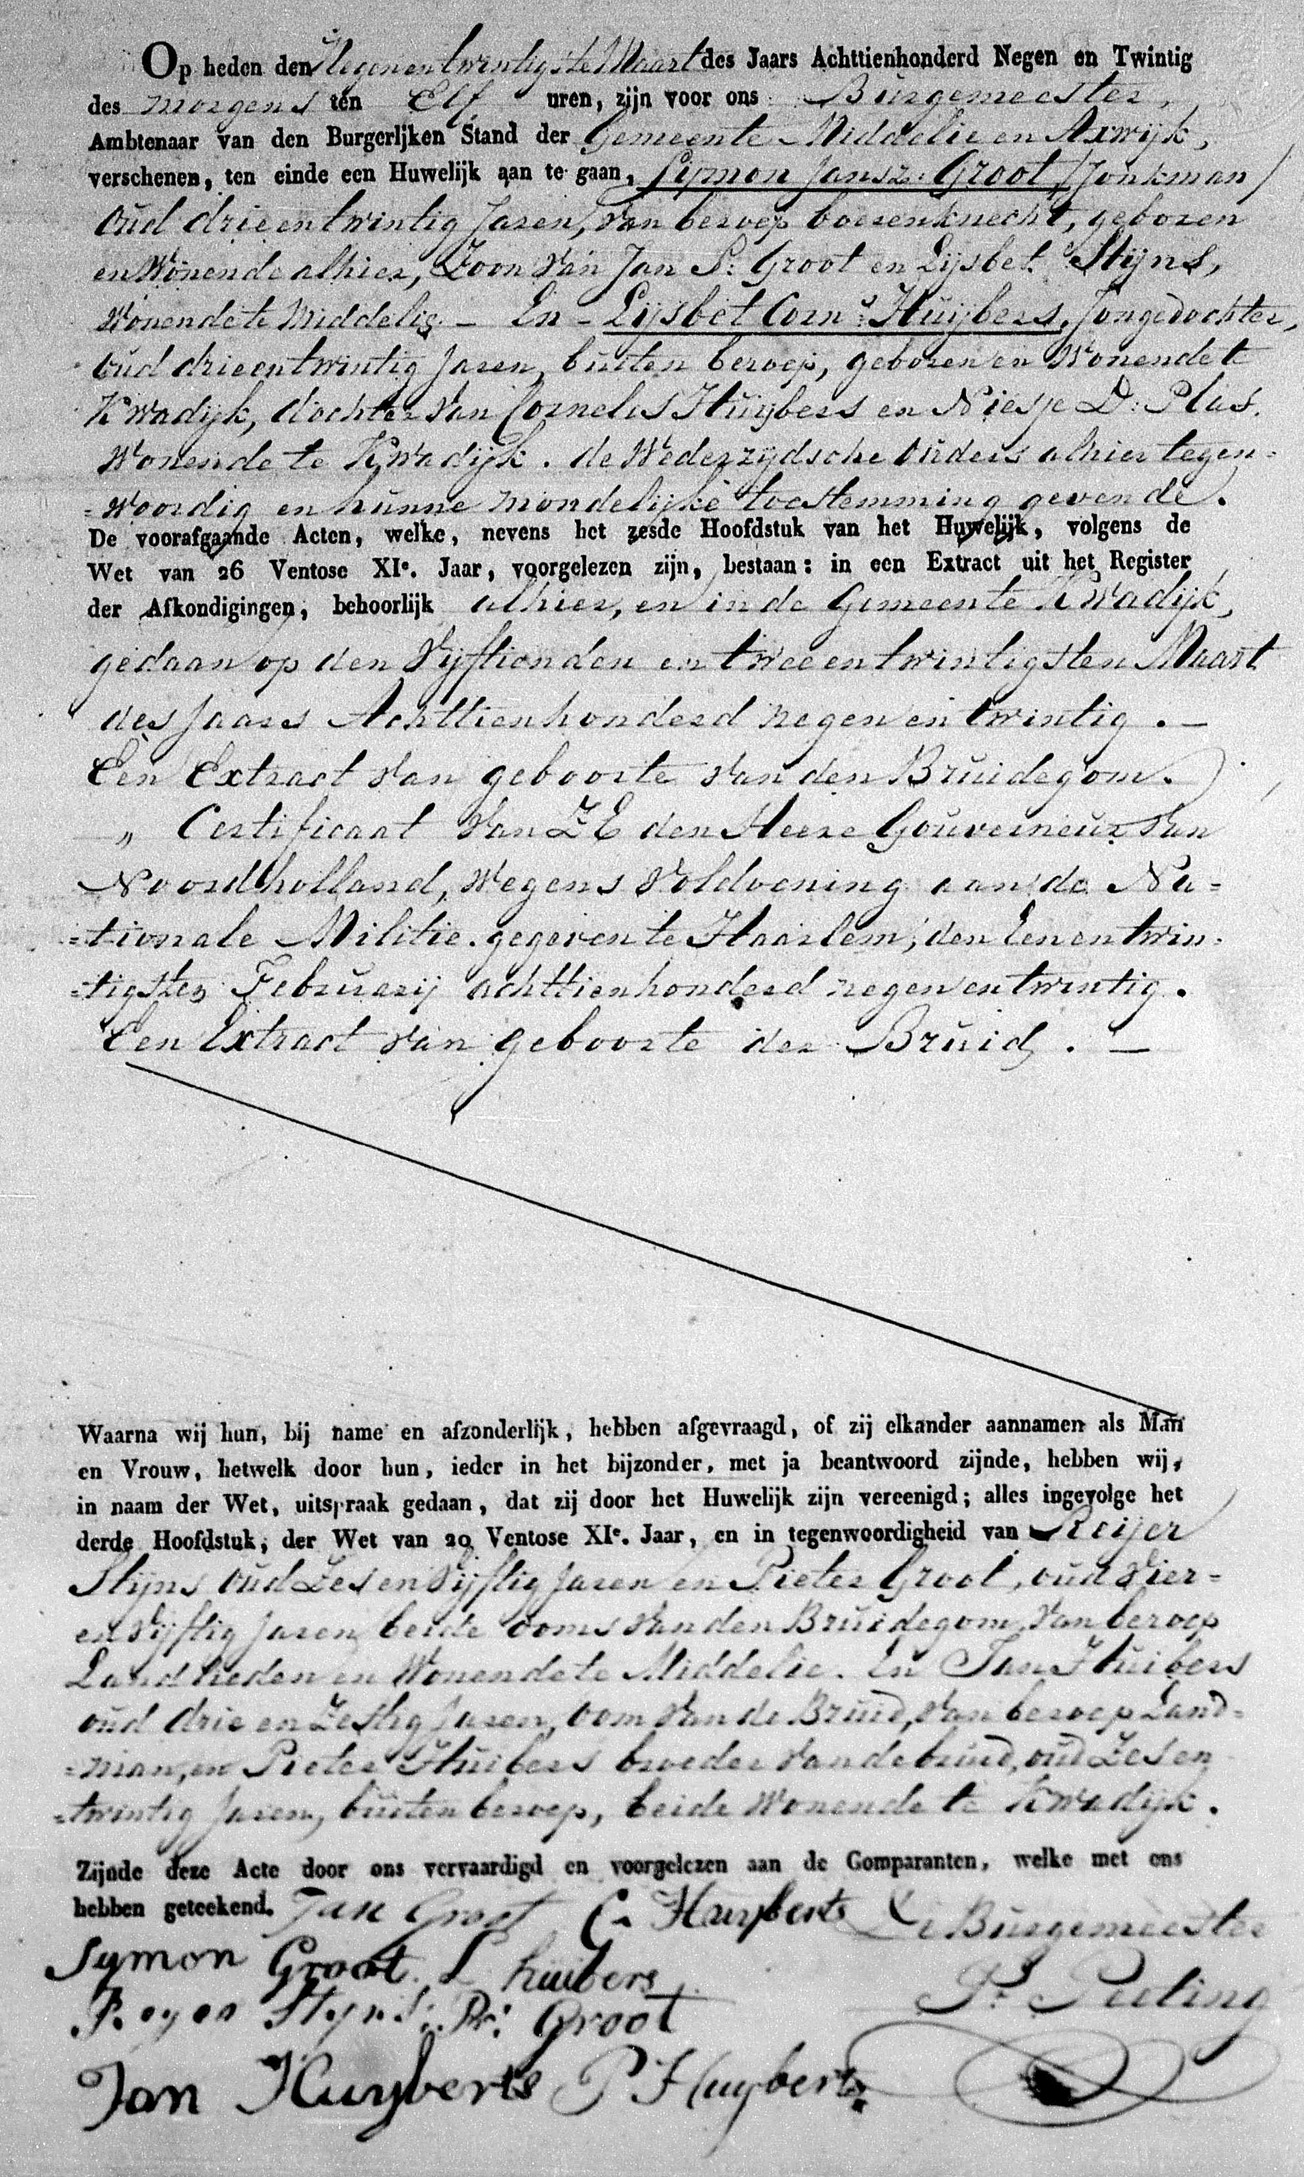 Op heden den Negenentwintigste Maart des Jaars Achttienhonderd Negen en Twintig
des morgens ten Elf uren, zijn voor ons Burgemeester,
Ambtenaar van den Burgerljken Stand der Gemeente Middelie en Axwijk,
verschenen, ten einde een Huwelijk aan te gaan, Sijmon Jansz: Groot /Jonkman/
oud drieentwintig Jaren, van beroep boerenknecht, geboren
en Wonende alhier, Zoon van Jan S: Groot en Lijsbet Stijns,
Wonende te Middelie - En - Lijsbet Corn:s Huijbers, Jongedochter,
oud drieentwintig Jaren, buiten beroep, geboren en Wonende t
Kwadijk, dochter van Cornelis Huijbers en Niesje D: Plas.
Wonende te Kwadijk. de Wederzijdsche ouders alhier tegen=
=woordig en hunne mondelijke toestemming gevende.
De voorafgaande Acten, welke, nevens het zesde Hoofdstuk van het Huwelijk, volgens de
Wet van 26 Ventose XIe. Jaar, voorgelezen zijn, bestaan: in een Extract uit het Register
der Afkondigingen, behoorlijk alhier, en in de Gemeente Kwadijk,
gedaan op den Vijftienden en tweeentwintigsten Maart
des Jaars Achttienhonderd negen en twintig. -
Een Extract van geboorte van den Bruidegom.
„ Certificaat van ZE den Heere Gouverneur van
Noordholland, Wegens Voldoening aan de Na=
=tionale Militie. gegeven te Haarlem, den Eenentwin=
=tigsten Februarij achttienhonderd negenentwintig.
Een Extract van geboorte der Bruid. -
Waarna wij hun, bij name en afzonderlijk, hebben afgevraagd, of zij elkander aannamen als Man
en Vrouw, hetwelk door hun, ieder in het bijzonder, met ja beantwoord zijnde, hebben wij,
in naam der Wet, uitspraak gedaan, dat zij door het Huwelijk zijn vereenigd; alles ingevolge het
derde Hoofdstuk, der Wet van 20 Ventose XIe. Jaar, en in tegenwoordigheid van Reijer
Stijns oud Zes en Vijftig Jaren en Pieter Groot, oud Vier=
en Vijftig Jaren, beide ooms van den Bruidegom, van beroep
Landlieden en Wonende te Middelie. En Jan Huibers
oud drie en Zestig Jaren, oom van de Bruid, van beroep Land=
=man, en Pieter Huibers broeder van de bruid, oud Zesen
=twintig Jaren, buiten beroep, beide Wonende te Kwadijk.
Zijnde deze Acte door ons vervaardigd en voorgelezen aan de Comparanten, welke met ons
hebben geteekend. Jan Groot C. Huyberts De Burgemeester
Symon Groot. L huibers
Reyer Styns: Pr: Groot P. Peeling
Jan Huyberts P Huyberts